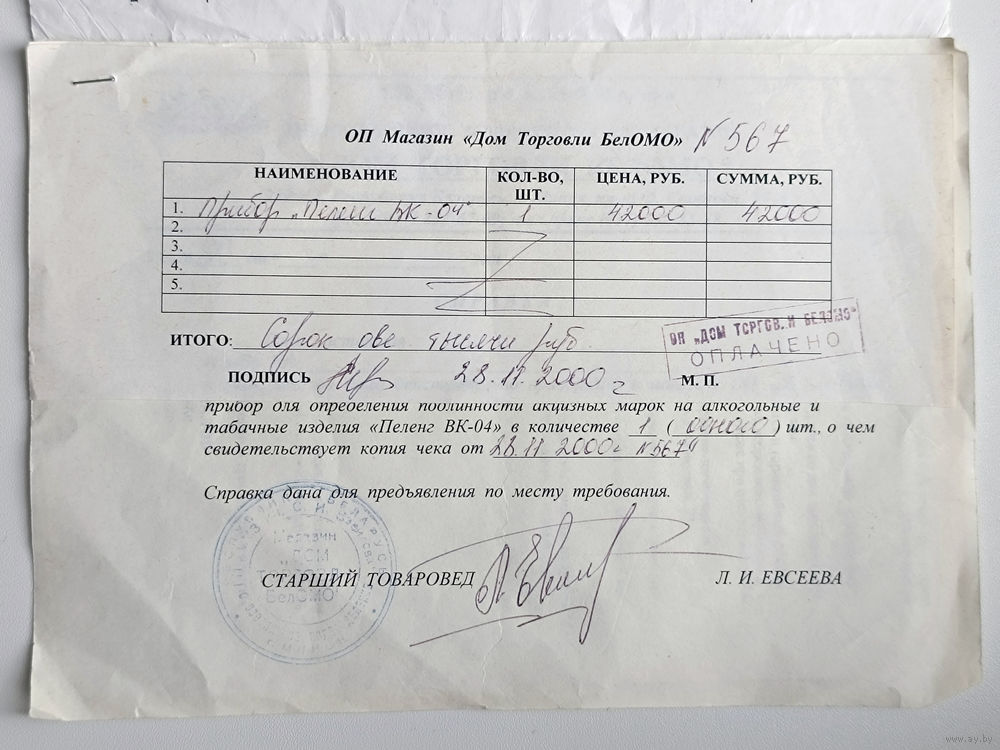 ОП Магазин «Дом Торговли БелОМО» N 567
НАИМЕНОВАНИЕ КОЛ-ВО, ШТ. ЦЕНА, РУБ. СУММА, РУБ.
1. Прибор „Пеленг ВК-04" 1 42000 42000
2.
3.
4.
5.
ИТОГО: Сорок две тысячи руб.
ОП „ДОМ ТОРГОВЛИ БЕЛОМО"
ОПЛАЧЕНО
ПОДПИСЬ 28.11.2000 г М. П.
прибор для определения подлинности акцизных марок на алкогольные и
табачные изделия «Пеленг ВК-04» в количестве 1 ( одного ) шт., о чем
свидетельствует копия чека от 28.11 2000г N567
Справка дана для предъявления по месту требования.
Магазин
ДОМ
БелОМО
СТАРШИЙ ТОВАРОВЕД Л. И. ЕВСЕЕВА
www.ay.by